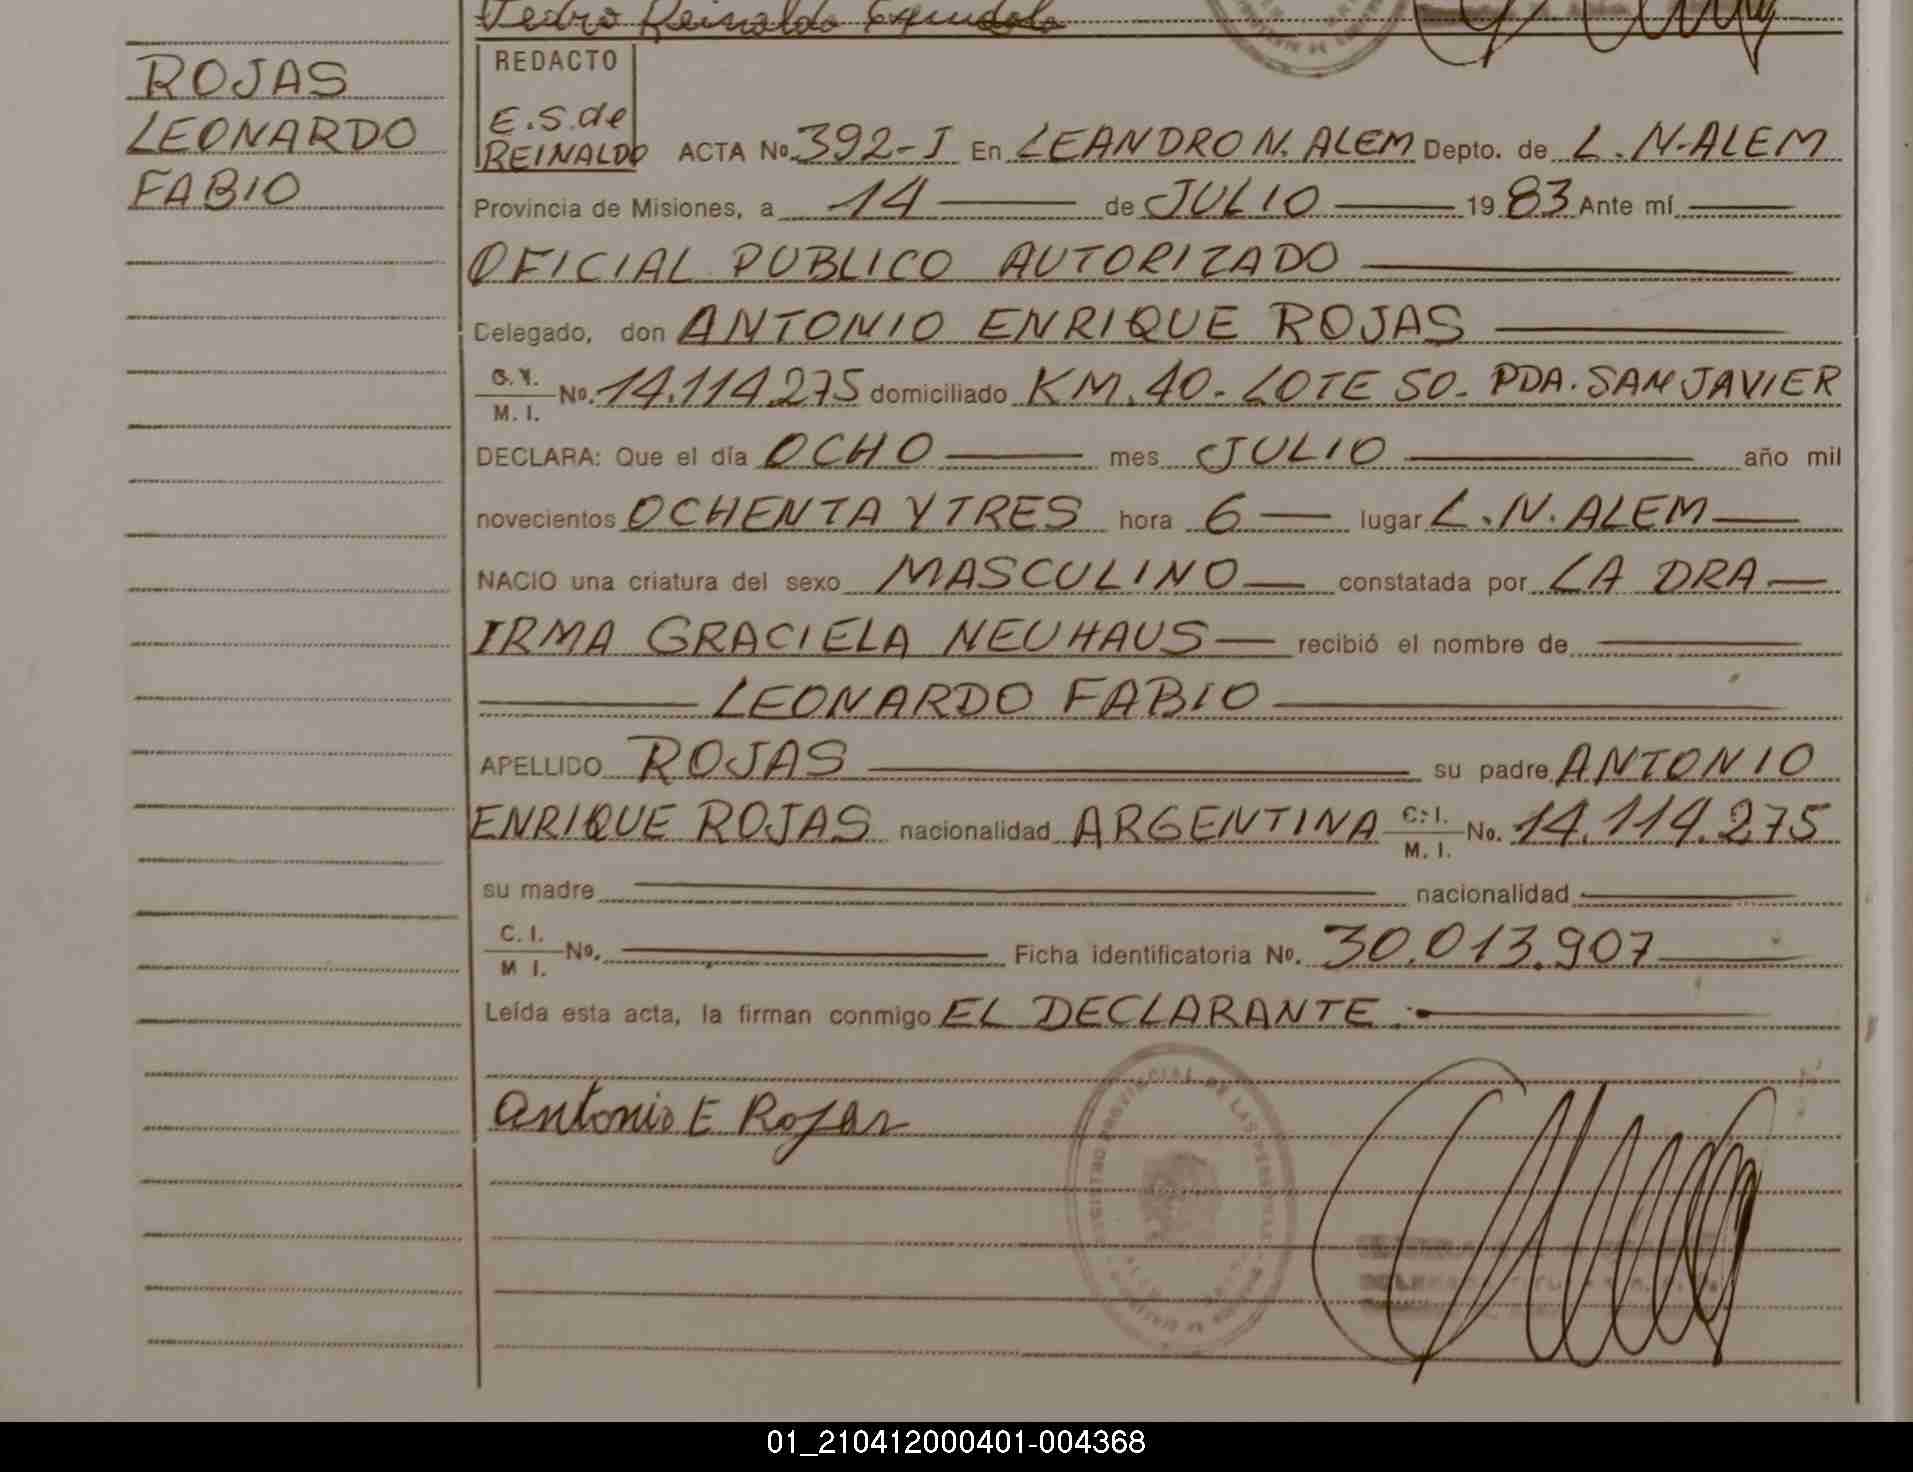 Pedro Reinaldo
ROJAS
LEONARDO
FABIO
REDACTO
E.S. de
REINALDO
ACTA No. 392-I En LEANDRO N. ALEM Depto. de L. N. ALEM
Provincia de Misiones, a 14 de JULIO 19 83 Ante mí
OFICIAL PUBLICO AUTORIZADO
Delegado, don ANTONIO ENRIQUE ROJAS
M. I. No. 14.114.275 domiciliado KM. 40 - LOTE 50 - PDA. SAN JAVIER
DECLARA: Que el día OCHO mes JULIO año mil
novecientos OCHENTA Y TRES hora 6 lugar L. N. ALEM
NACIO una criatura del sexo MASCULINO constatada por LA DRA
IRMA GRACIELA NEUHAUS recibió el nombre de
LEONARDO FABIO
APELLIDO ROJAS su padre ANTONIO
ENRIQUE ROJAS nacionalidad ARGENTINA C. I. M. I. No. 14.114.275
su madre nacionalidad
C. I. M I. No. Ficha identificatoria No. 30.013.907
Leída esta acta, la firman conmigo EL DECLARANTE.
Antonio E Rojas
REGISTRO PROVINCIAL DE LAS PERSONAS
01_210412000401-004368